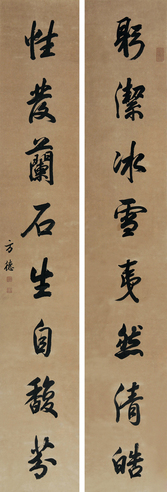 躬潔冰雪夷然清皓
性發蘭石生自馥芬
方德